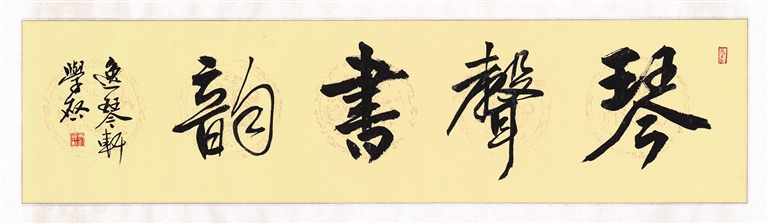 琴聲書韻
逸琴軒
學啟